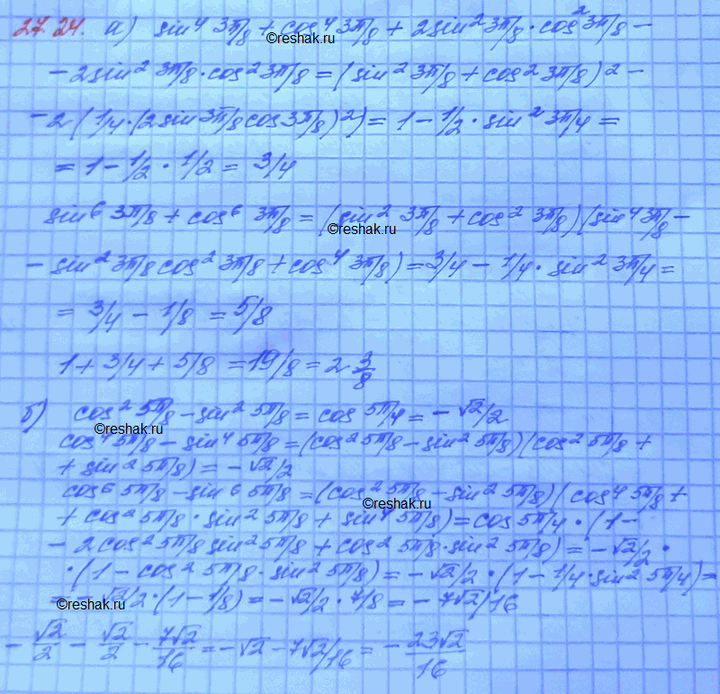 27.24. а) sin⁴ 3π/8 + cos⁴ 3π/8 + 2sin² 3π/8 · cos² 3π/8 −
©reshak.ru
− 2sin² 3π/8 · cos² 3π/8 = (sin² 3π/8 + cos² 3π/8)² −
− 2 (1/4 · (2sin 3π/8 cos 3π/8)²) = 1 − 1/2 · sin² 3π/4 =
= 1 − 1/2 · 1/2 = 3/4
sin⁶ 3π/8 + cos⁶ 3π/8 = (sin² 3π/8 + cos² 3π/8)(sin⁴ 3π/8 −
©reshak.ru
− sin² 3π/8 cos² 3π/8 + cos⁴ 3π/8) = 3/4 − 1/4 · sin² 3π/4 =
= 3/4 − 1/8 = 5/8
1 + 3/4 + 5/8 = 19/8 = 2 3/8
б) cos² 5π/8 − sin² 5π/8 = cos 5π/4 = − √2/2
©reshak.ru
cos⁴ 5π/8 − sin⁴ 5π/8 = (cos² 5π/8 − sin² 5π/8)(cos² 5π/8 +
+ sin² 5π/8) = − √2/2
cos⁶ 5π/8 − sin⁶ 5π/8 = (cos² 5π/8 − sin² 5π/8)(cos⁴ 5π/8 +
©reshak.ru
+ cos² 5π/8 · sin² 5π/8 + sin⁴ 5π/8) = cos 5π/4 · (1 −
− 2cos² 5π/8 sin² 5π/8 + cos² 5π/8 · sin² 5π/8) = − √2/2 ·
· (1 − cos² 5π/8 · sin² 5π/8) = − √2/2 · (1 − 1/4 · sin² 5π/4) =
= − √2/2 · (1 − 1/8) = − √2/2 · 7/8 = − 7√2/16
©reshak.ru
− √2/2 − √2/2 − 7√2/16 = − √2 − 7√2/16 = − 23√2/16